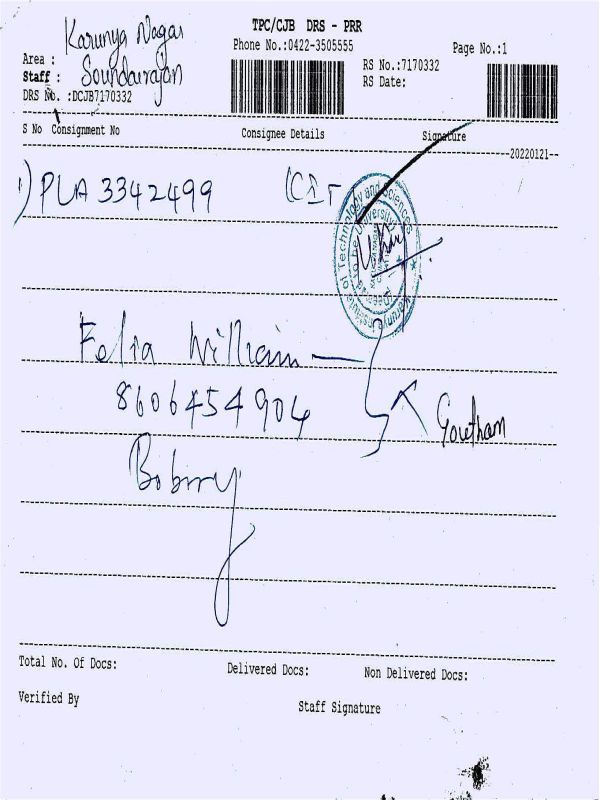 TPC/CJB DRS - PRR
Karunya Nagar
Phone No.:0422-3505555
Page No.:1
Area :
RS No.:7170332
Staff : Soundairajan
RS Date:
DRS No. :DCJB7170332
S No Consignment No Consignee Details Signature
20220121
1) PLA 3342499
Institute of Technology and Sciences
Karunya
Felia William
8606454904
Goutham
Total No. Of Docs: Delivered Docs: Non Delivered Docs:
Verified By Staff Signature